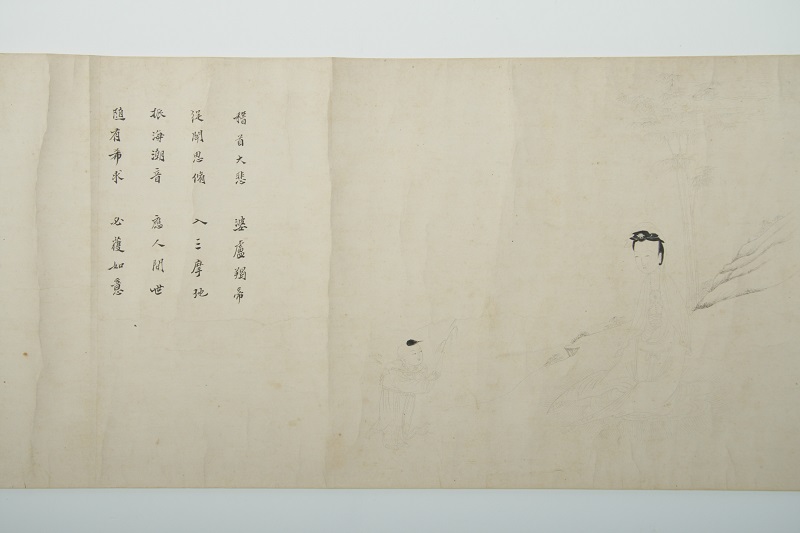 稽首大悲 婆盧羯帝
從聞思脩 入三摩地
振海潮音 應人間世
隨有希求 必獲如意